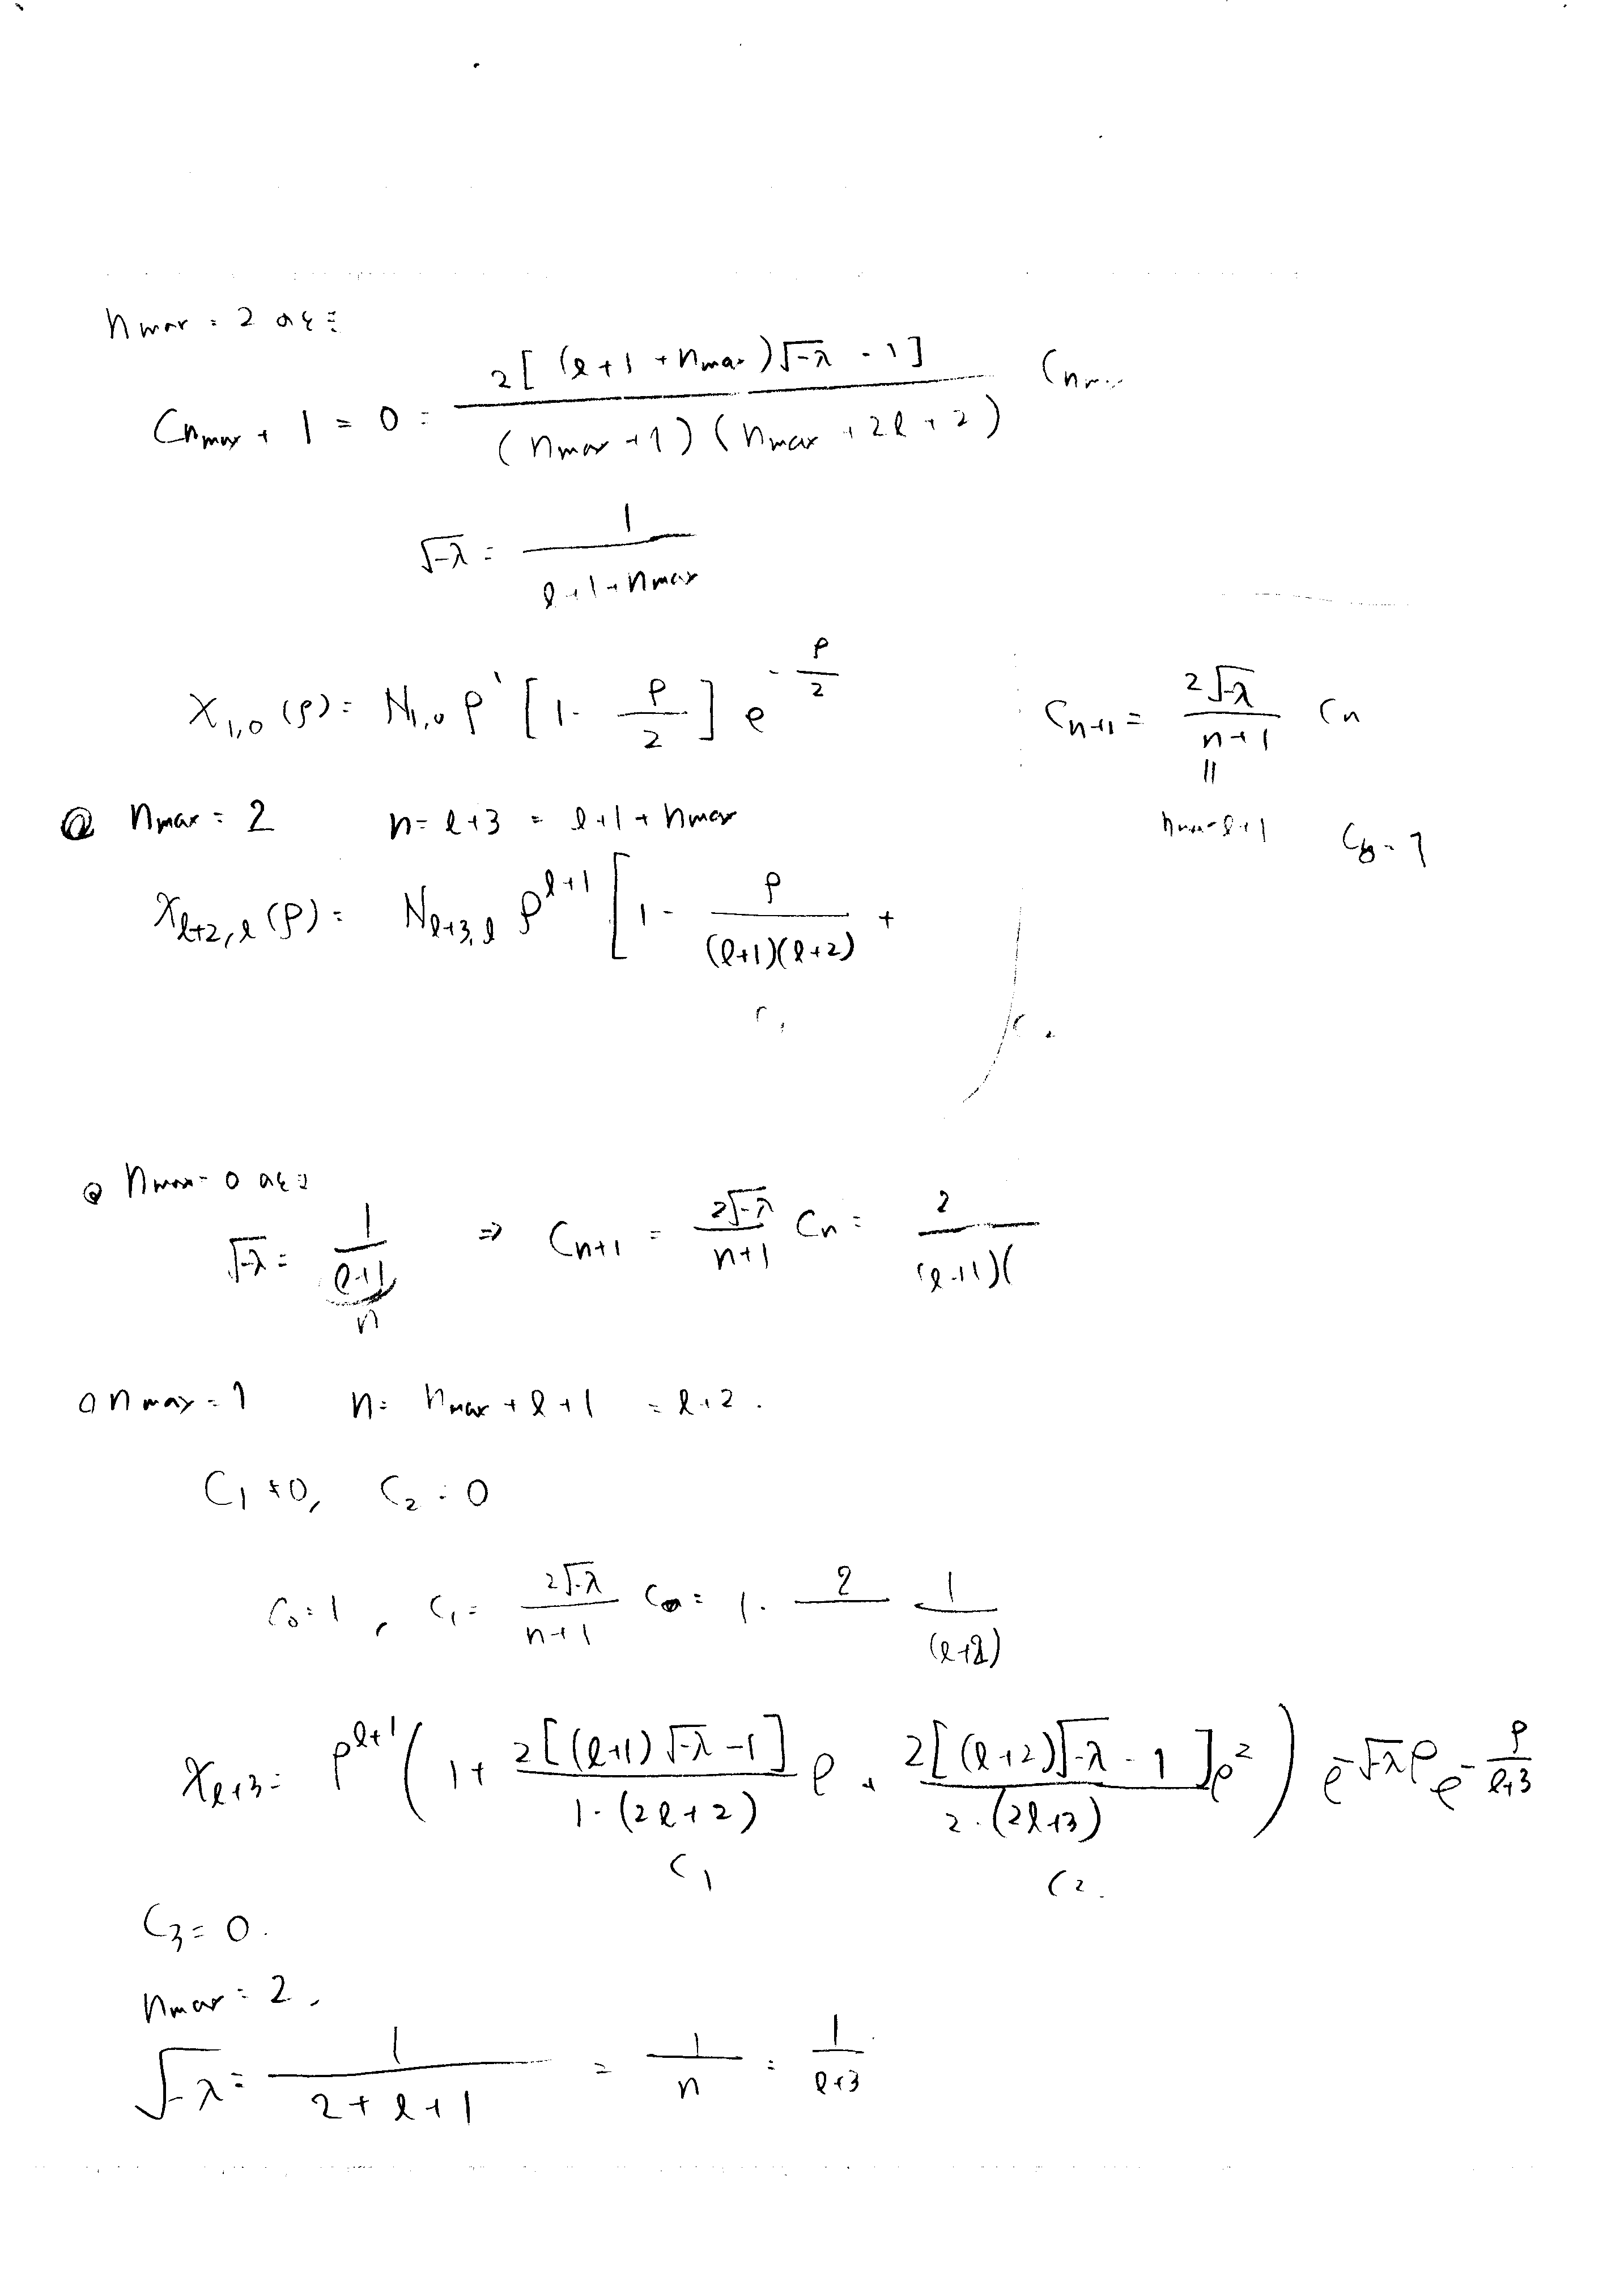 n_max = 2 일 때
C_{n_max + 1} = 0 = \frac{2[(l+1+n_max)\sqrt{-λ} - 1]}{(n_max+1)(n_max+2l+2)} C_{n_max}
\sqrt{-λ} = \frac{1}{l+1+n_max}
X_{1,0}(ρ) = N_{1,0} ρ^1 [1 - \frac{ρ}{2}] e^{-\frac{ρ}{2}}
C_{n+1} = \frac{2\sqrt{-λ}}{n+1} C_n
n_max = 2 n = l+3 = l+1+n_max
C_0 = 1
X_{l+2,l}(ρ) = N_{l+3,l} ρ^{l+1} [1 - \frac{ρ}{(l+1)(l+2)} +
C_1 C_2
n_max = 0 일 때
\sqrt{-λ} = \frac{1}{l+1} ⇒ C_{n+1} = \frac{2\sqrt{-λ}}{n+1} C_n = \frac{2}{(l+1)(
n
n_max = 1 n = n_max + l + 1 = l+2.
C_1 ≠ 0, C_2 = 0
C_0 = 1, C_1 = \frac{2\sqrt{-λ}}{n+1} C_0 = 1 · \frac{2}{} \frac{1}{(l+2)}
X_{l+3} = ρ^{l+1} (1 + \frac{2[(l+1)\sqrt{-λ} - 1]}{1·(2l+2)} ρ + \frac{2[(l+2)\sqrt{-λ} - 1]}{2·(2l+3)} ρ^2) e^{-\sqrt{-λ}ρ} e^{-\frac{ρ}{l+3}}
C_1 C_2.
C_3 = 0.
n_max = 2,
\sqrt{-λ} = \frac{1}{2+l+1} = \frac{1}{n} = \frac{1}{l+3}